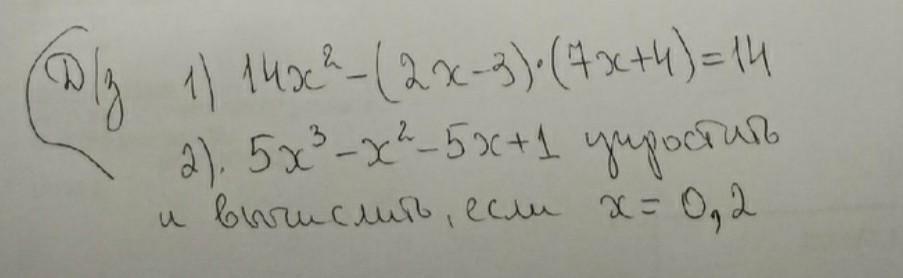 Д/з 1) 14x² - (2x - 3)·(7x + 4) = 14
2). 5x³ - x² - 5x + 1 упростить
и вычислить, если x = 0,2